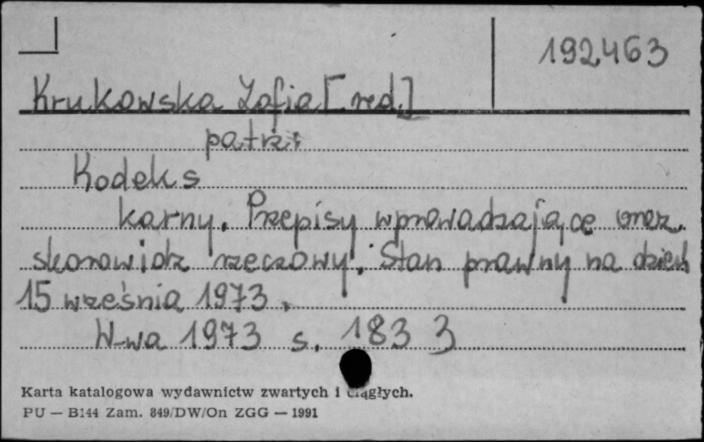 192463
Krukowska Zofia [red.]
patrz:
Kodeks
karny. Przepisy wprowadzające oraz
skorowidz rzeczowy. Stan prawny na dzień
15 września 1973.
W-wa 1973 s. 183 3
Karta katalogowa wydawnictw zwartych i ciągłych.
PU — B144 Zam. 849/DW/On ZGG — 1991